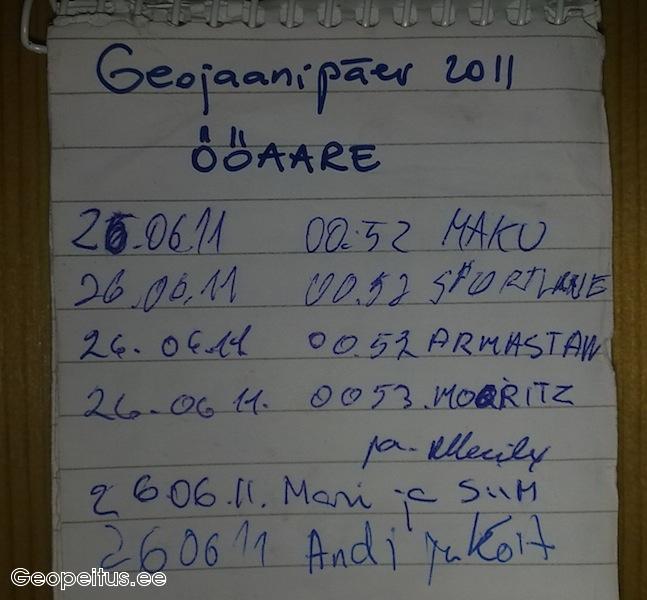 Geojaanipäev 2011
ÖÖAARE
26.06.11 00:52 MAKU
26.06.11 00.52 SPORTLANE
26.06.11 00.52 ARMASTAW
26.06 11. 00 53. MOORITZ
ja
26 06.11. Mari ja SiiM
26 06 11 Andi ja Koit
Geopeitus.ee